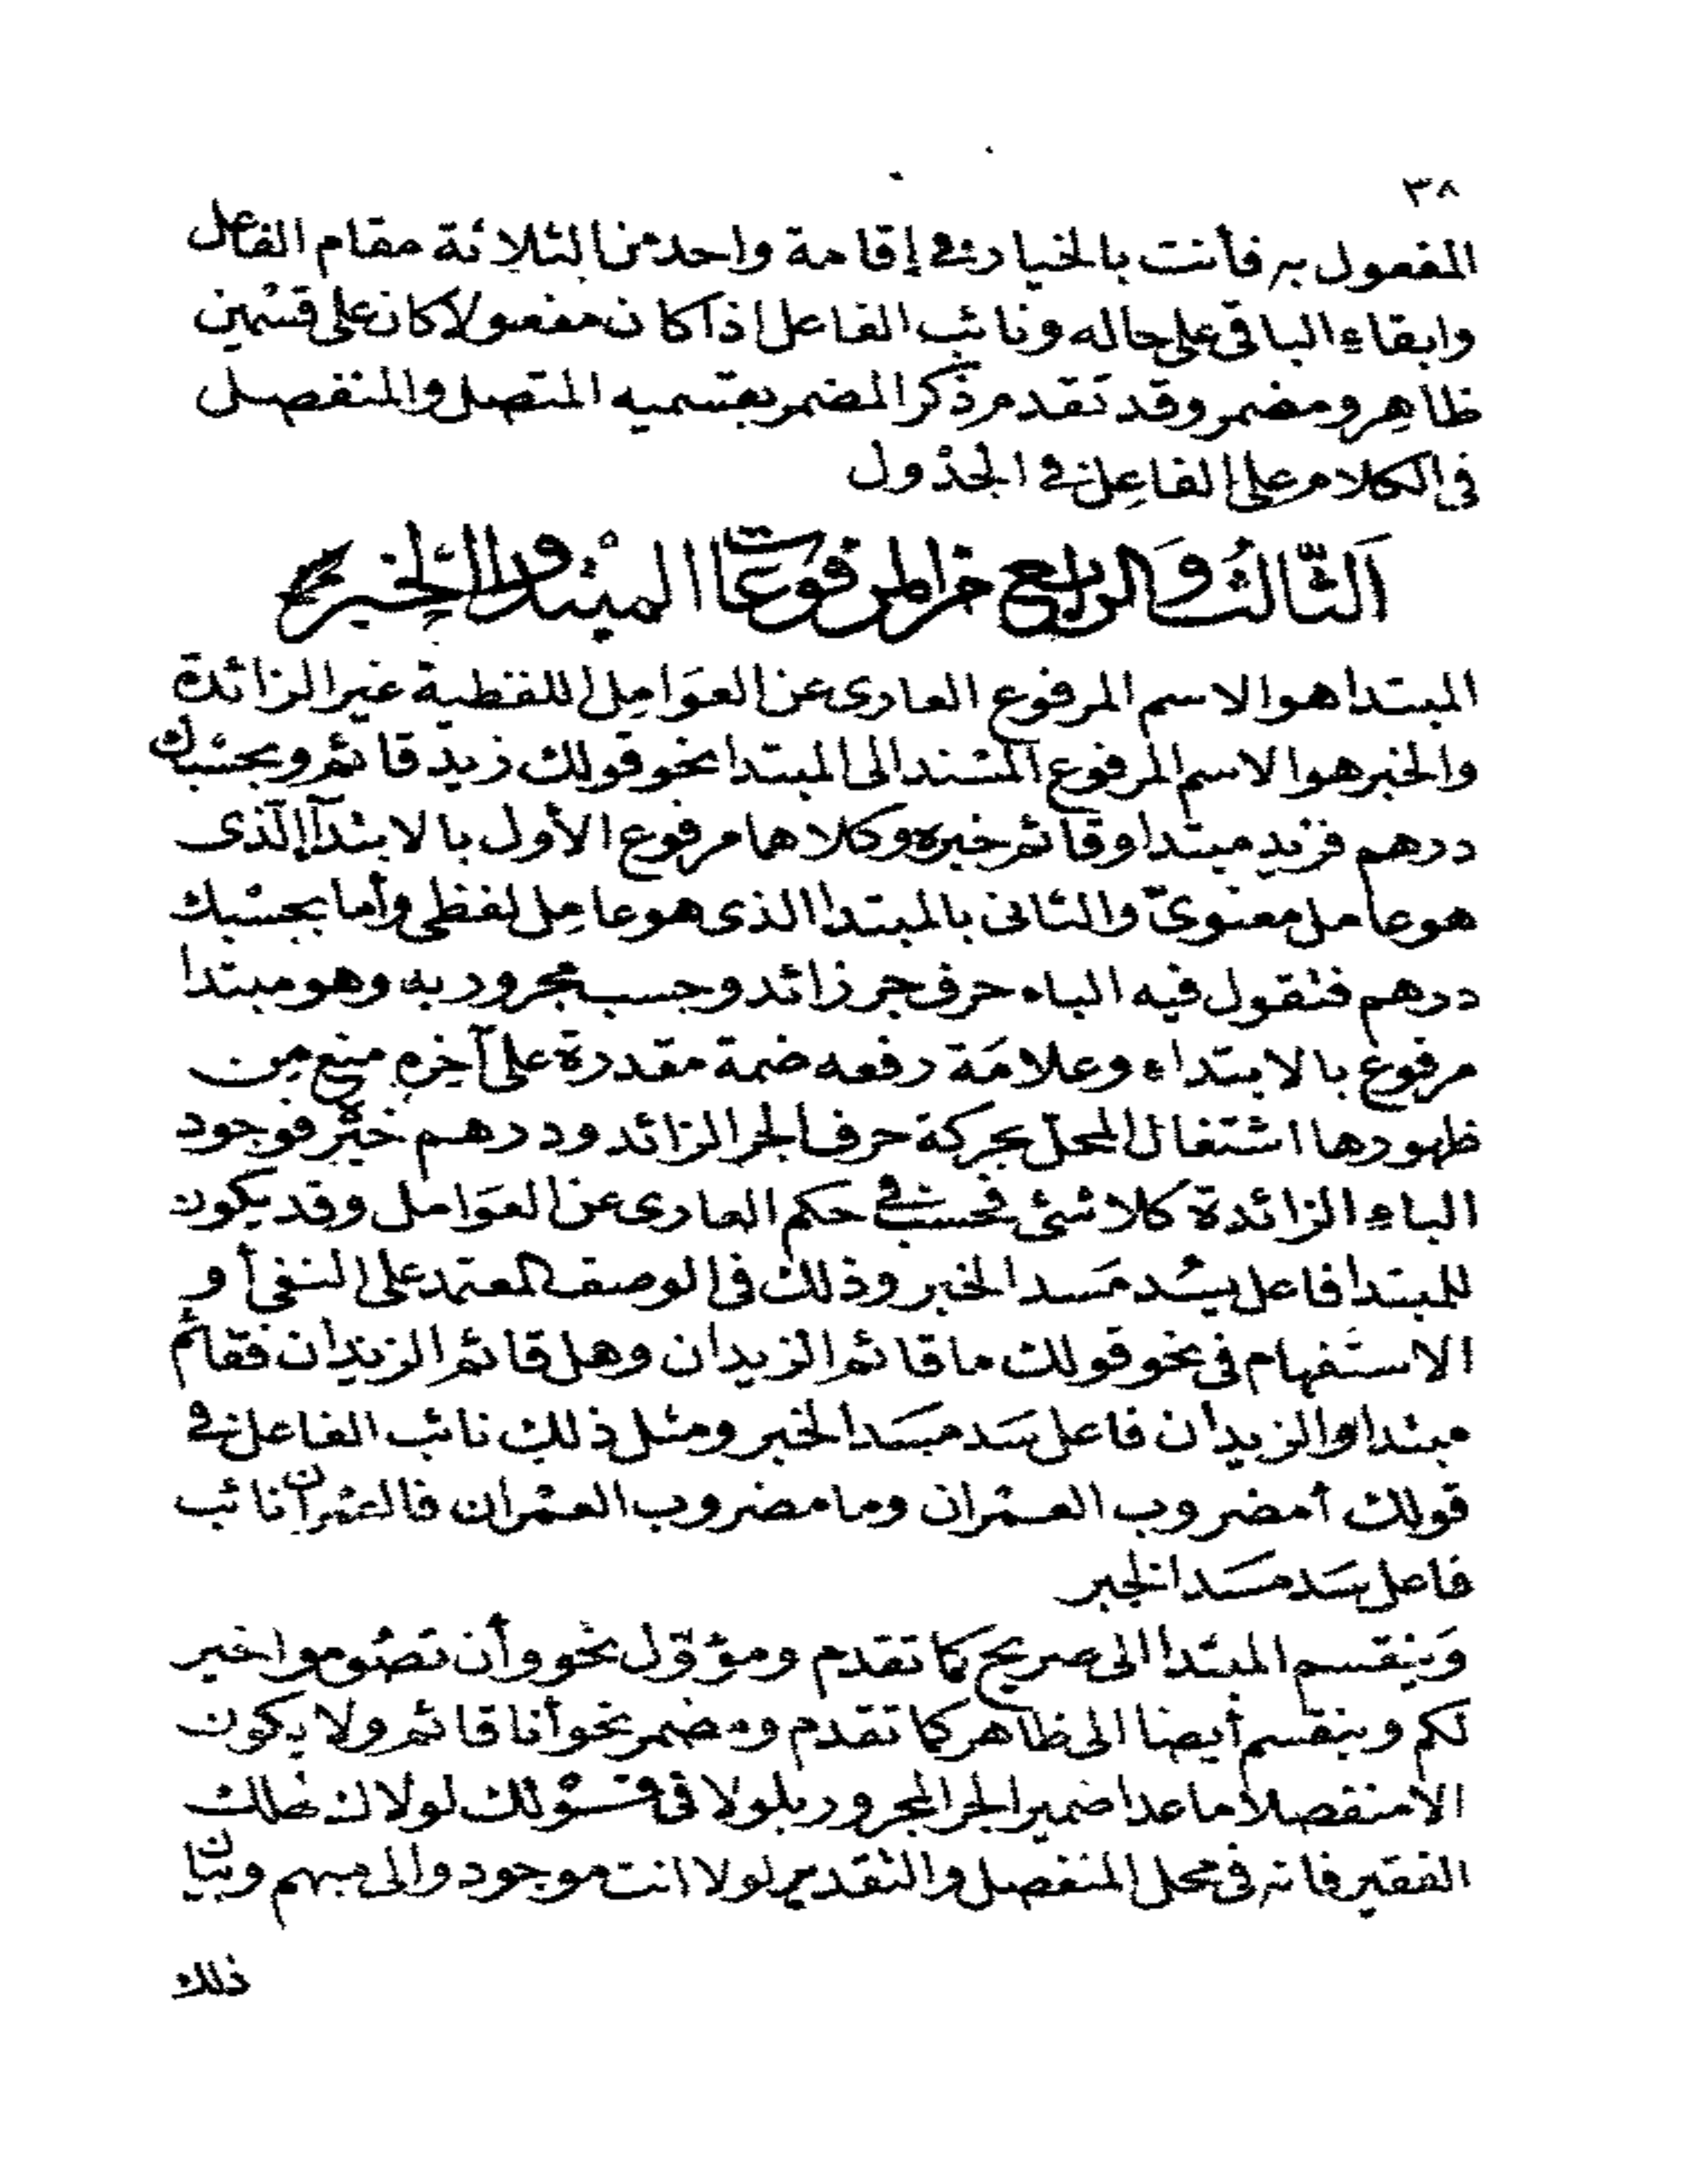 ٣٨
المفعول به فأنت بالخيار في إقامة واحد من الثلاثة مقام الفاعل
وابقاء الباقي على حاله ونائب الفاعل اذا كان مفعولا كان على قسْمين
ظاهِر ومضمر وقد تقدم ذكر المضمر بقسميه المتصل والمنفصل
في الكلام على الفاعِل في الجدْول
اَلثّالثُ وَالرابع من المرفوعات المبْتدا والخبر
المبتدا هو الاسم المرفوع العارى عن العوَامِل اللفظية غير الزائدة
والخبر هو الاسم المرفوع المسْند الى المبتدا نحو قولك زيد قائم وبحسْبك
درهم فزيد مبتدا وقائم خبره وكلاهما مرفوع الأول بالابتدآء الّذى
هو عامل معنوىّ والثانى بالمبتدا الذى هو عامِل لفظى وأما بحسْبك
درهم فتقول فيه الباء حرف جر زائد وحسب مجرور به وهو مبتدا
مرفوع بالابتداء وعلامَة رفعه ضمة مقدرة على آخِرهِ منع مِن
ظهورها اشتغال المحلّ بحركة حرف الجر الزائد ودرهم خبْره فوجود
الباءِ الزائدة كلا شئ فحسب في حكم العارى عن العوَامل وقد يكون
للمبتدا فاعل يسُد مَسد الخبر وذلك في الوصف المعتمد على النفي أو
الاستَفهام في نحو قولك ما قائم الزيدان وهل قائم الزيدان فقائم
مبتدا والزيدان فاعل سَد مسَد الخبر ومثل ذلك نائب الفاعل في
قولك أمضروب العمْران وما مضروب العمْران فالعمْران نائب
فاعل سَد مسَد الخبر
وَينقسم المبتدا الى صريح كما تقدم ومؤوّل نحو وأن تصُوموا خير
لكم وينقسم أيضا الى ظاهر كما تقدم ومضمر نحو أنا قائم ولا يكون
الا منفصلا ما عدا ضمير الجر المجرور بلولا في قسوْلك لولاك هلك
الفقير فانه في محل المنفصل والتقدير لولا انت موجود والى مبهم وبيان
ذلك